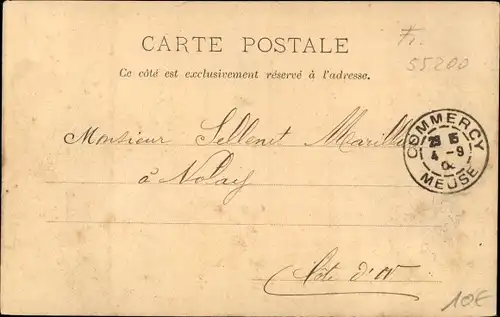 CARTE POSTALE
Fr.
55200
Ce côté est exclusivement réservé à l'adresse.
Monsieur Sellenet
COMMERCY
4 - 9
MEUSE
à Nolay
Côte d'or
10€